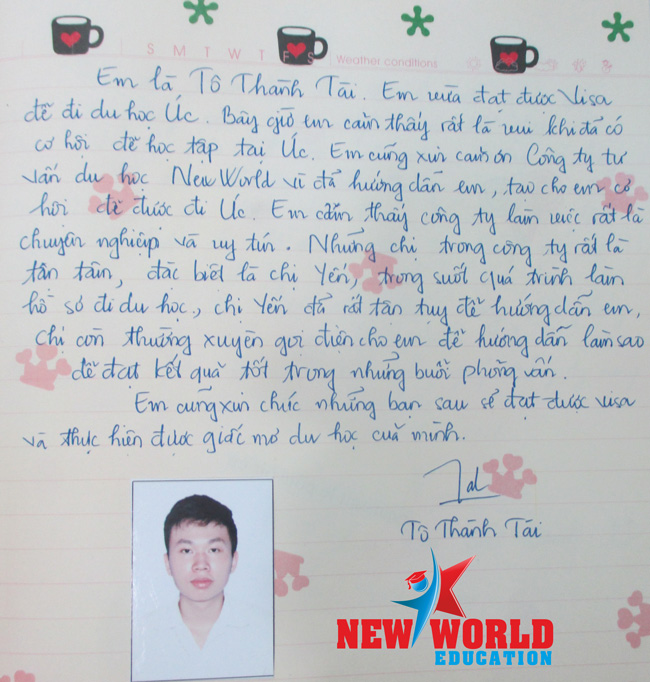 S M T W T F S Weather conditions
Em là Tô Thành Tài. Em vừa đạt được Visa
để đi du học Úc. Bây giờ em cảm thấy rất là vui khi đã có
cơ hội để học tập tại Úc. Em cũng xin cảm ơn Công ty tư
vấn du học New World vì đã hướng dẫn em, tạo cho em có
hội để được đi Úc. Em cảm thấy công ty làm việc rất là
chuyên nghiệp và uy tín. Những chị trong công ty rất là
tận tâm, đặc biệt là chị Yến, trong suốt quá trình làm
hồ sơ đi du học, chị Yến đã rất tận tụy để hướng dẫn em,
chị còn thường xuyên gọi điện cho em để hướng dẫn làm sao
để đạt kết quả tốt trong những buổi phỏng vấn.
Em cũng xin chúc những bạn sau sẽ đạt được visa
và thực hiện được giấc mơ du học của mình.
Tô Thành Tài
NEW WORLD
EDUCATION